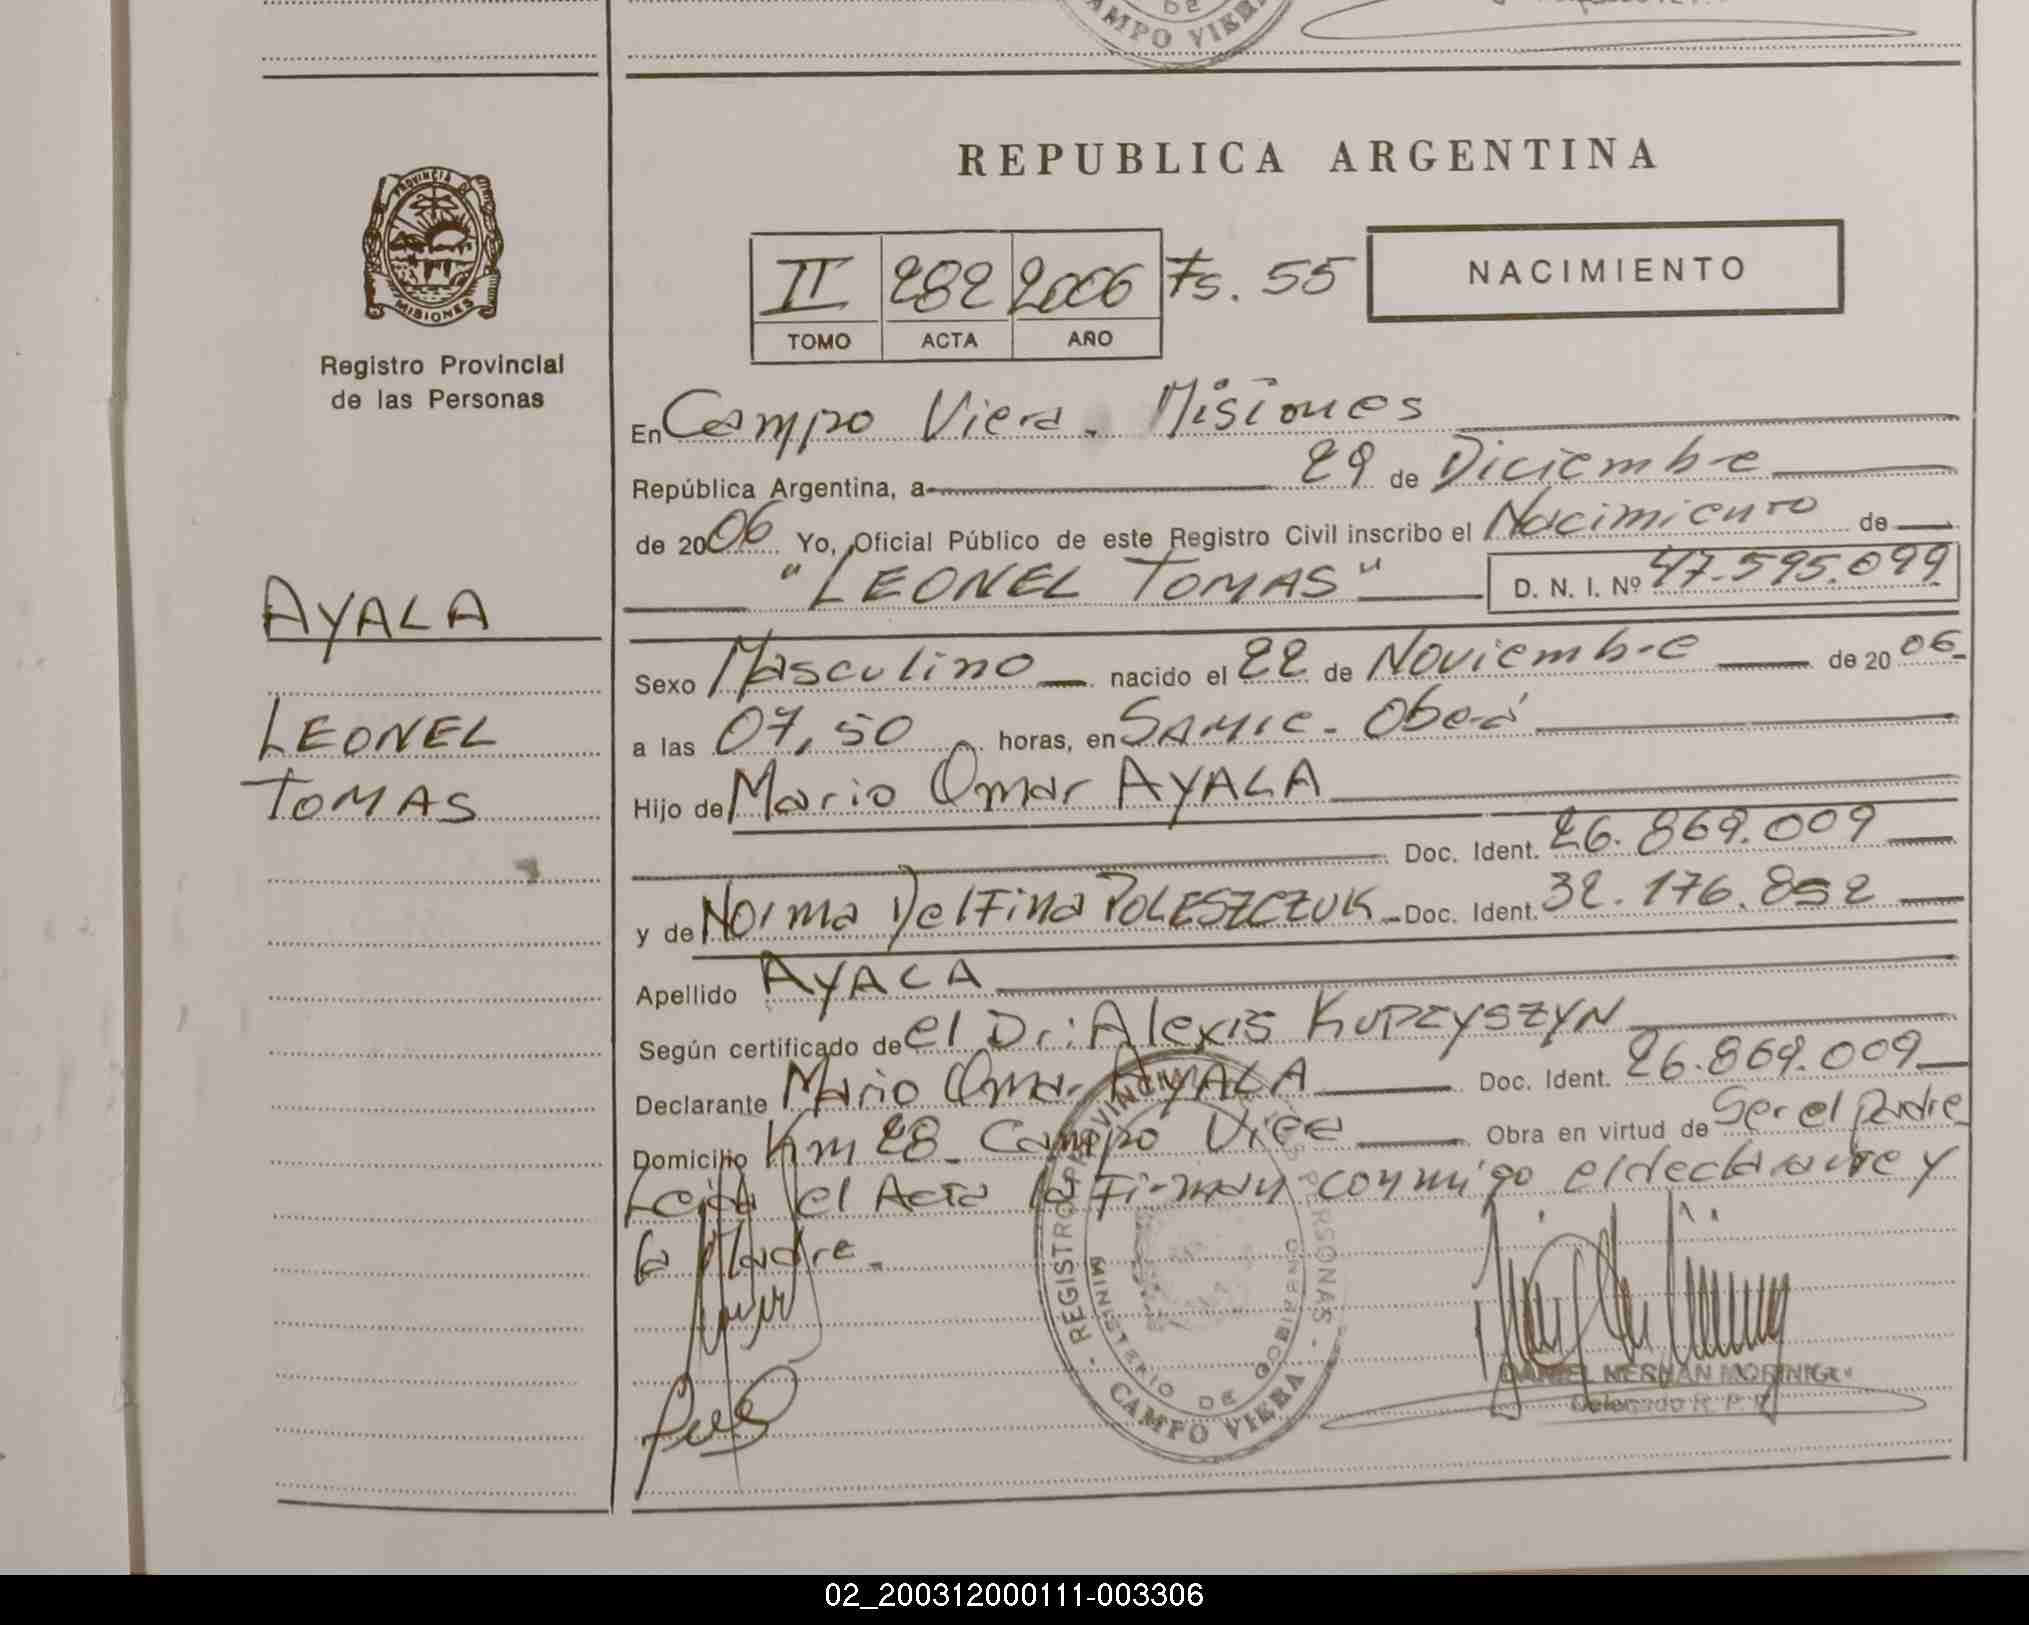 CAMPO VIERA
REPUBLICA ARGENTINA
PROVINCIA DE
MISIONES
Registro Provincial
de las Personas
II 282 2006 Fs. 55
TOMO ACTA AÑO
NACIMIENTO
En Campo Viera. Misiones
República Argentina, a 29 de Diciembre
de 2006 Yo, Oficial Público de este Registro Civil inscribo el Nacimiento de
"LEONEL TOMAS" D. N. I. Nº 47.595.099
AYALA
LEONEL
TOMAS
Sexo Masculino nacido el 22 de Noviembre de 2006
a las 07,50 horas, en SAMIC - Oberá
Hijo de Mario Omar AYALA
Doc. Ident. 26.869.009
y de Norma Delfina POLESZCZUK - Doc. Ident. 32.176.852
Apellido AYALA
Según certificado de el Dr: Alexis KUPZYSZYN
Declarante Mario Omar AYALA Doc. Ident. 26.869.009
Domicilio Km 28 - Campo Viera Obra en virtud de Ser el padre
Leida el Acta la Firman conmigo el declarante y
la Madre.
REGISTRO PROVINCIAL DE LAS PERSONAS
MINISTERIO DE GOBIERNO
CAMPO VIERA
DANIEL HERNAN MORINIGO
Delegado R. P. P.
02_200312000111-003306